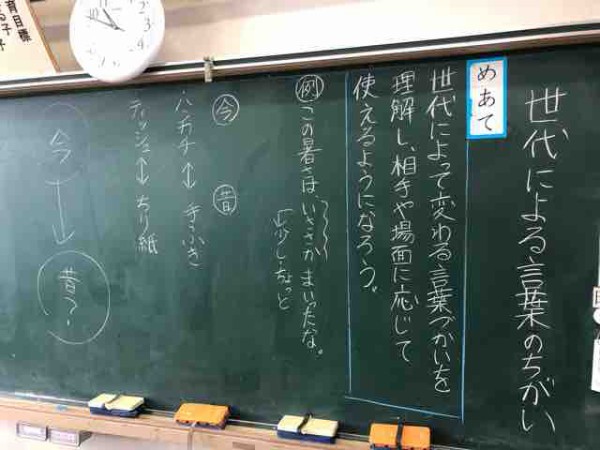 世代による言葉のちがい
めあて
世代によって変わる言葉づかいを
理解し、相手や場面に応じて
使えるようになろう。
例 この暑さは、いささかまいったな。
↓少し・ちょっと
今 昔
ハンカチ↔手ふき
ティッシュ↔ちり紙
今→昔？
育目標